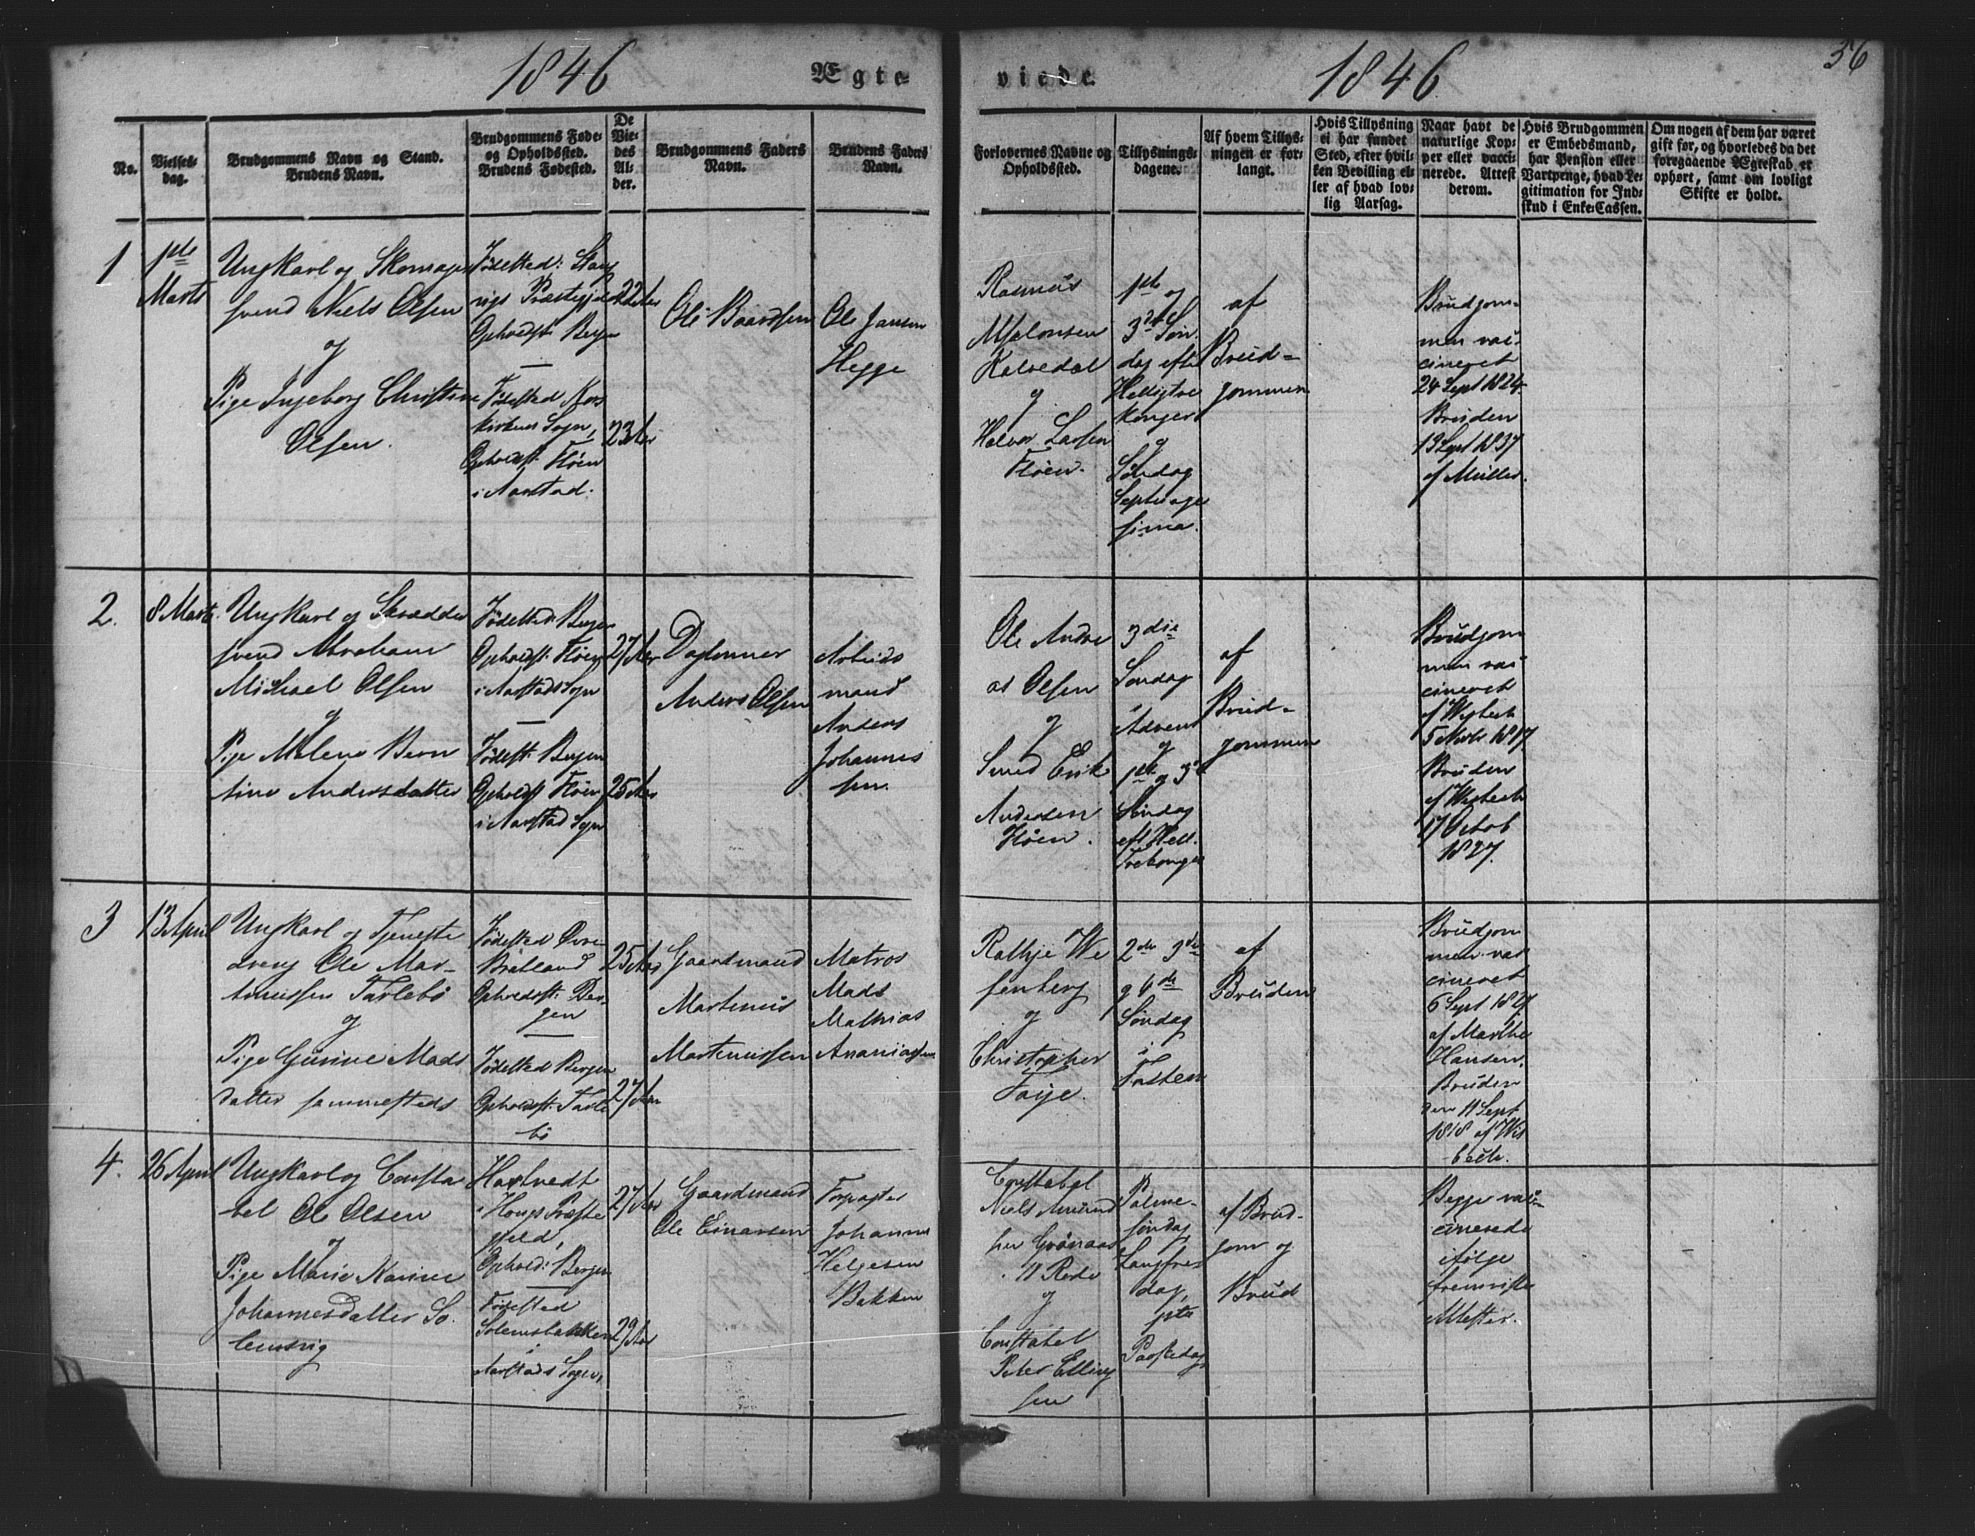 1846 Ægte- viede. 1846 36
No.
Vielses-
dag.
Brudgommens Navn og Stand.
Brudens Navn.
Brudgommens Føde-
og Opholdssted.
Brudens Fødested.
De
Vie-
des
Al-
der.
Brudgommens Faders
Navn.
Brudens Faders
Navn.
Forlovernes Navne og
Opholdssted.
Tillysnings-
dagene.
Af hvem Tillys-
ningen er for-
langt.
Hvis Tillysning
ei har fundet
Sted, efter hvil-
ken Bevilling el-
ler af hvad lov-
lig Aarsag.
Naar havt de
naturlige Kop-
per eller vacci-
nerede. Attest
derom.
Hvis Brudgommen
er Embedsmand,
har Pension eller
Vartpenge, hvad Le-
gitimation for Ind-
skud i Enke-Cassen.
Om nogen af dem har været
gift før, og hvorledes da det
foregaaende Ægteskab er
ophørt, samt om lovligt
Skifte er holdt.
1
1ste
Marts
Ungkarl og Skomager
svend Niels Olsen
og
Pige Ingeborg Christine
Olsen.
Fødested:
Præstegjeld
Opholdst: Bergen
Fødested Kors
kirkens Sogn,
Opholdst: Fløen
i Aarstad.
22 Aar
23 Aar
Ole Baardsen
Ole Jansen
Hegge
Rasmus
Mjelonsen
Kalvedal
og
Halvor Larsen
Fløen.
1ste og
3die Søn
dag efter
Helligtre
konger
og
Søndag
Septuage
sima.
af
Brud-
gommen
Brudgom-
men vac-
cineret
24 Sept 1824
Bruden
13 Sept 1837
af Müller.
2.
8 Marts
Ungkarl og Skrædder
svend Abraham
Michael Olsen
og
Pige Malene Bern
tine Andersdatter
Fødested Bergen
Opholdst: Fløen
i Aarstad Sogn
Fødest: Bergen
Opholdst Fløen
i Aarstad Sogn
27 Aar
25 Aar
Daglønner
Anders Olsen
Arbeids
mand
Anders
Johannes
sen
Ole Andre
as Olsen
og
Smed Erik
Andersen
Fløen.
3die
Søndag
i Advent
og
1ste og 3die
Søndag
eft Hell.
Trekonger
af
Brud-
gommen
Brudgom
men vac-
cineret
af Wisbech
5 Novbr 1817
Bruden
af Wisbech
17 Octob
1827.
3
13 April
Ungkarl og Tjeneste
dreng Ole Mar-
tinussen Tarlebø
og
Pige Gurine Mads
datter sammesteds
Fødested Øvre
Bratland
Opholdst: Ber-
gen
Fødested Bergen
Opholdst: Tarle
bø
25 Aar
27 Aar
Gaardmand
Martinus
Martinussen
Matros
Mads
Mathias
Ananiassen
Rathje We
senberg
og
Christopher
Foije.
2den 3die
og 6te
Søndag
i
Fasten
af
Bruden
Brudgom
men vac
cineret
6 Sept 1827
af Marthe
Hansen.
Bruden
den 11 Sept
1818 af Wis
bech.
4.
26 April
Ungkarl og Consta
bel Ole Olsen
og
Pige Marie Karine
Johannesdatter So
lemsvig
Hartvedt
i Hougs Præste
gjeld,
Ophold: Bergen
Fødested
Solemsbakken
i
Aarstads Sogn.
27 Aar
29 Aar
Gaardmand
Ole Einarsen
Forpagter
Johannes
Helgesen
Bakken
Constabel
Niels Amund
sen Grønaas
11 Rode
og
Constabel
Peter Elling
sen
Palme-
søndag
Langfre
dag,
1ste
Paaskedag
af Brud-
gom og
Brud
Begge vac-
cinerede
ifølge
fremviste
Attester.